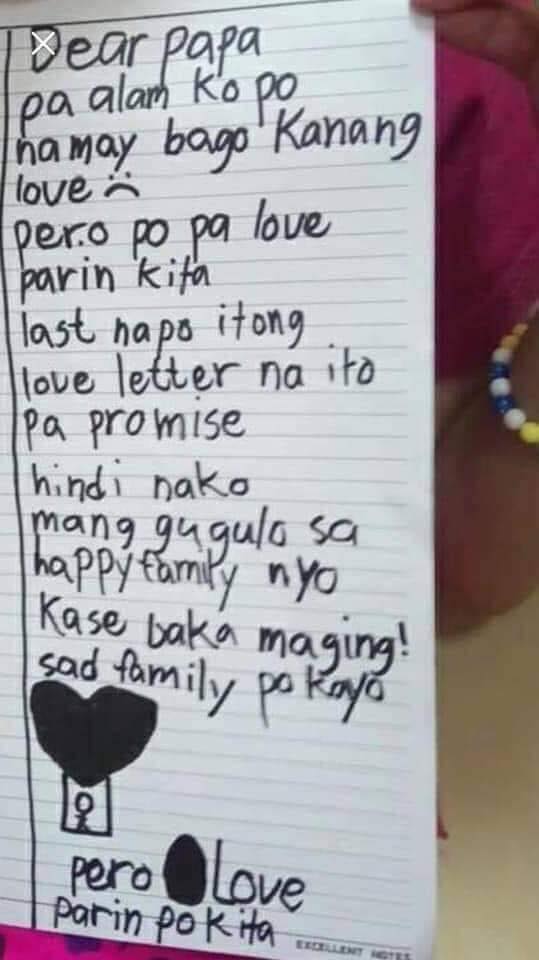 Dear papa
pa alam ko po
na may bago kanang
love
pero po pa love
parin kita
last napo itong
love letter na ito
pa promise
hindi nako
mang gugulo sa
happy family nyo
Kase baka maging!
sad family po kayo
pero Love
parin po kita
EXCELLENT NOTES